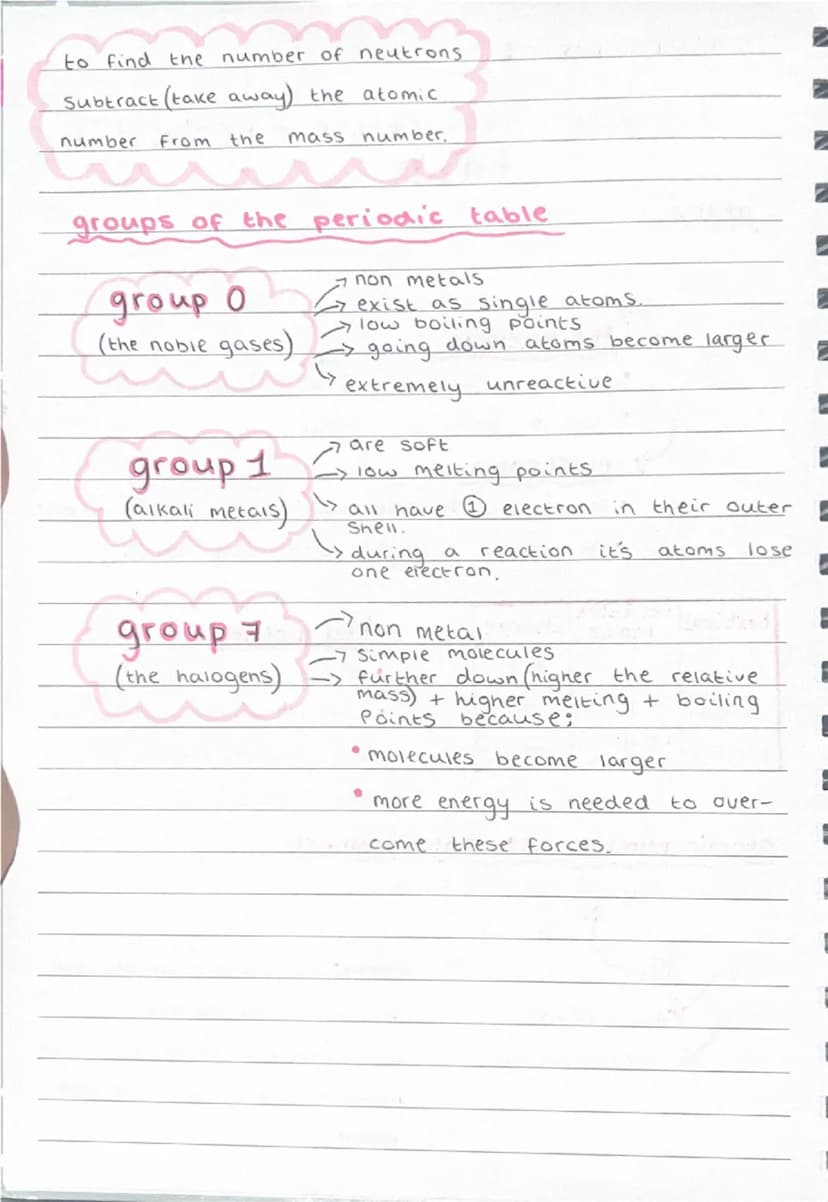 to find the number of neutrons
subtract (take away) the atomic
number from the mass number.
groups of the periodic table
group 0
(the noble gases)
→ non metals
→ exist as single atoms.
→ low boiling points
→ going down atoms become larger
→ extremely unreactive
group 1
(alkali metals)
→ are soft
→ low melting points
→ all have ① electron in their outer
shell.
→ during a reaction it's atoms lose
one electron.
group 7
(the halogens)
→ non metal
→ simple molecules
→ further down (higher the relative
mass) + higher melting + boiling
points because;
• molecules become larger
• more energy is needed to over-
come these forces.